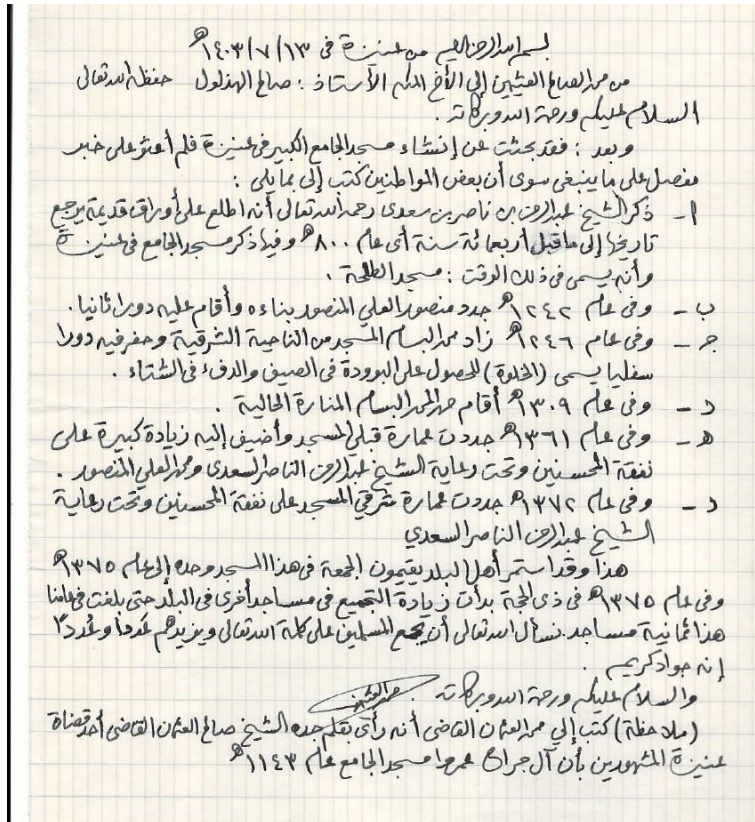 بسم الله الرحمن الرحيم من عنيزة في ١٤٠٣/٧/١٣هـ
من محمد الصالح العثيمين إلى الأخ المكرم الأستاذ : صالح الهذلول حفظه الله تعالى
السلام عليكم ورحمة الله وبركاته .
وبعد : فقد بحثت عن إنشاء مسجد الجامع الكبير في عنيزة فلم أعثر على خبر
مفصل على ما ينبغي سوى أن بعض المواطنين كتب إلي بما يلي :
أ - ذكر الشيخ عبدالرحمن بن ناصر بن سعدي رحمه الله تعالى أنه اطلع على أوراق قديمة يرجع
تاريخها إلى ما قبل أربعمائة سنة أي عام ٨٠٠هـ وفيها ذكر مسجد الجامع في عنيزة
وأنه يسمى في ذلك الوقت : مسجد الطلحة .
ب - وفي عام ١٢٤٢هـ جدد منصور العلي المنصور بناءه وأقام عليه دورا ثانيا .
جـ - وفي عام ١٢٤٦هـ زاد محمد البسام المسجد من الناحية الشرقية وحفر فيه دورا
سفليا يسمى (الخلوة) للحصول على البرودة في الصيف والدفء في الشتاء .
د - وفي عام ١٣٠٩هـ أقام محمد البسام المنارة الحالية .
هـ - وفي عام ١٣٦١هـ جددت عمارة قبلي المسجد وأضيف إليه زيادة كبيرة على
نفقة المحسنين وتحت رعاية الشيخ عبدالرحمن الناصر السعدي ومحمد العلي المنصور .
د - وفي عام ١٣٧٢هـ جددت عمارة شرقي المسجد على نفقة المحسنين وتحت رعاية
الشيخ عبدالرحمن الناصر السعدي
هذا وقد استمر أهل البلد يقيمون الجمعة في هذا المسجد وحده إلى عام ١٣٧٥هـ
وفي عام ١٣٧٥هـ في ذي الحجة بدأت زيادة التجميع في مساجد أخرى في البلد حتى بلغت في عامنا
هذا ثمانية مساجد . نسأل الله تعالى أن يجمع المسلمين على كلمة الله تعالى ويزيدهم عَدداً وعُدداً
إنه جواد كريم .
والسلام عليكم ورحمة الله وبركاته . محمد العثيمين
(ملاحظة) كتب إلي محمد العثمان القاضي أنه رأى بقلم جده الشيخ صالح العثمان القاضي أحد قضاة
عنيزة المشهورين بأن آل جراح عمروا مسجد الجامع عام ١١٤٣هـ